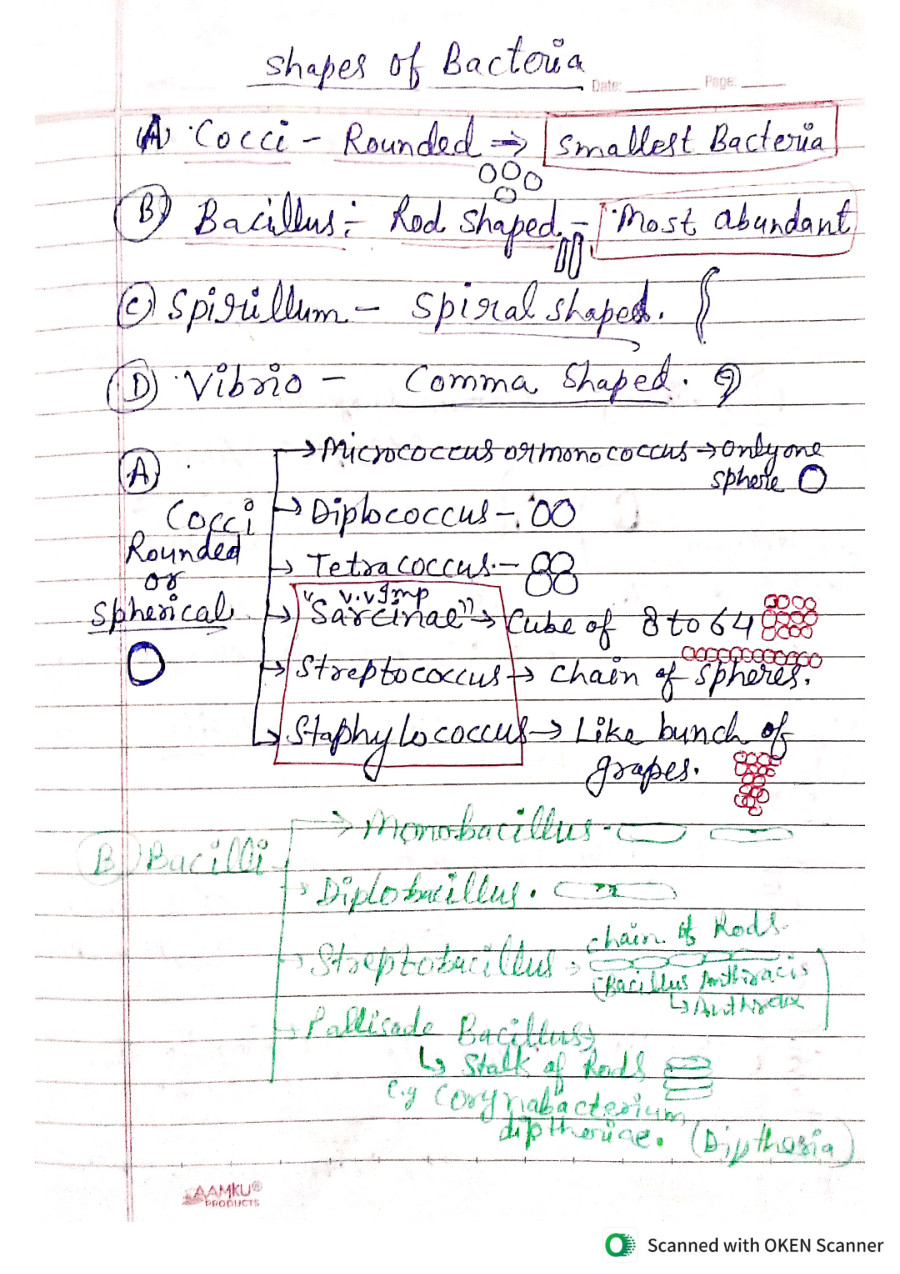 shapes of Bacteria
Date: Page:
(A) Cocci - Rounded ⇒ Smallest Bacteria
(B) Bacillus :- Rod shaped - Most abundant
(C) Spirillum - Spiral shaped.
(D) Vibrio - Comma Shaped.
(A) Cocci Rounded or Spherical
→ Micrococcus or monococcus → Only one sphere
→ Diplococcus -
→ Tetracoccus. -
v.v Imp
→ "Sarcinae" → Cube of 8 to 64
→ Streptococcus → chain of spheres.
→ Staphylococcus → Like bunch of
grapes.
(B) Bacilli
→ Monobacillus -
→ Diplobacillus.
chain of Rods.
→ Streptobacillus →
(Bacillus Anthracis
↳ Anthrax)
→ Pallisade Bacillus
↳ Stalk of Rods
e.g Corynabacterium
diptheriae. (Diptheria)
AAMKU®
PRODUCTS
Scanned with OKEN Scanner